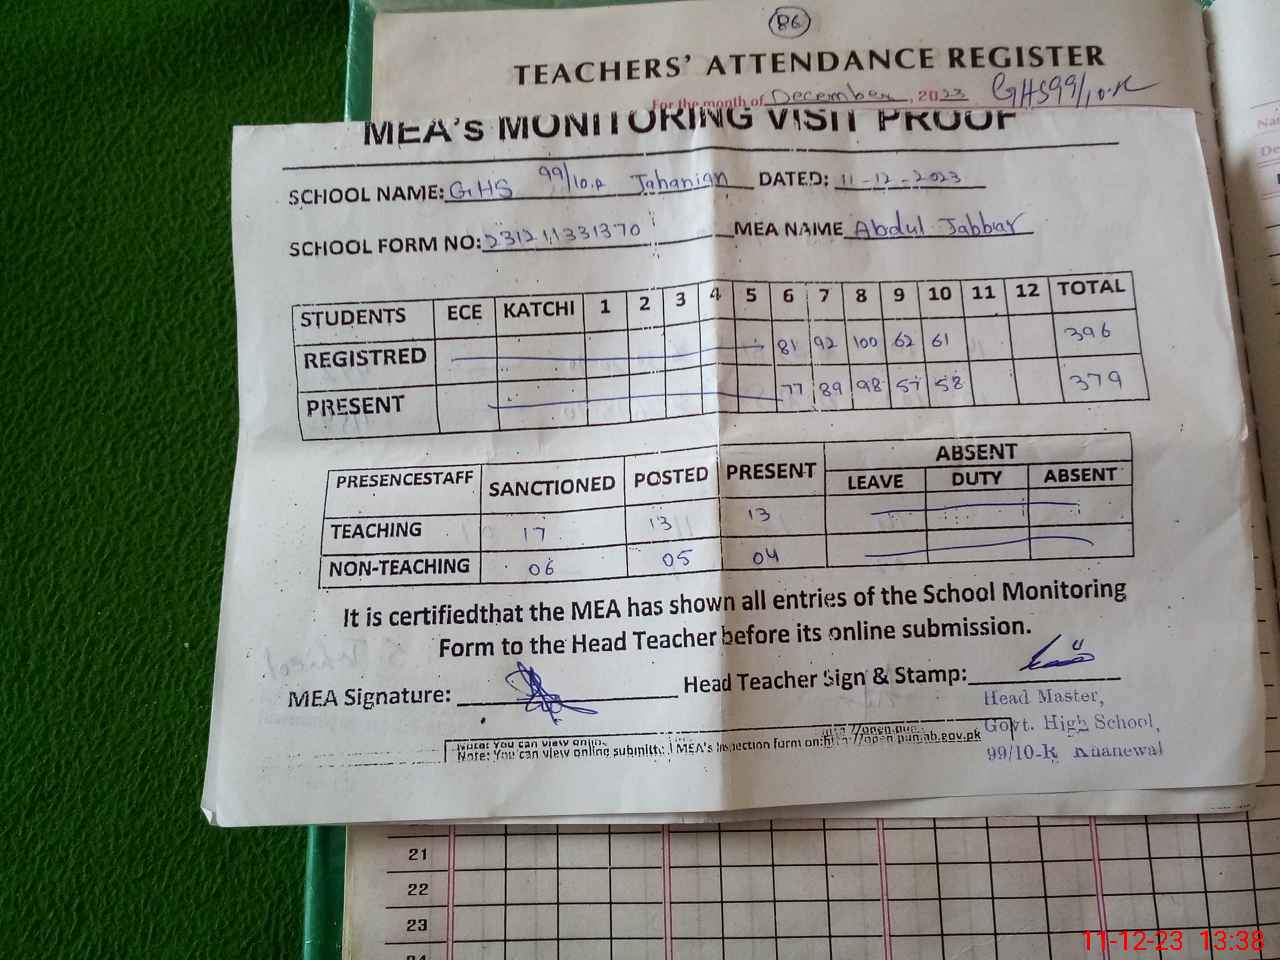 86
TEACHERS' ATTENDANCE REGISTER
For the month of December, 2023 GHS 99/10.R
MEA's MONITORING VISIT PROOF
SCHOOL NAME: GHS 99/10.R Jahanian DATED: 11-12-2023
SCHOOL FORM NO: 231211331370 MEA NAME Abdul Jabbar
STUDENTS ECE KATCHI 1 2 3 4 5 6 7 8 9 10 11 12 TOTAL
REGISTRED 81 92 100 62 61 396
PRESENT 77 89 98 57 58 379
PRESENCESTAFF SANCTIONED POSTED PRESENT ABSENT
LEAVE DUTY ABSENT
TEACHING 17 13 13
NON-TEACHING 06 05 04
It is certifiedthat the MEA has shown all entries of the School Monitoring
Form to the Head Teacher before its online submission.
MEA Signature: Head Teacher Sign & Stamp:
Head Master,
Govt. High School,
99/10-R Khanewal
Note: You can view online submitt MEA's Inspection form on:http://open.punjab.gov.pk
21
22
23
24
11-12-23 13:38